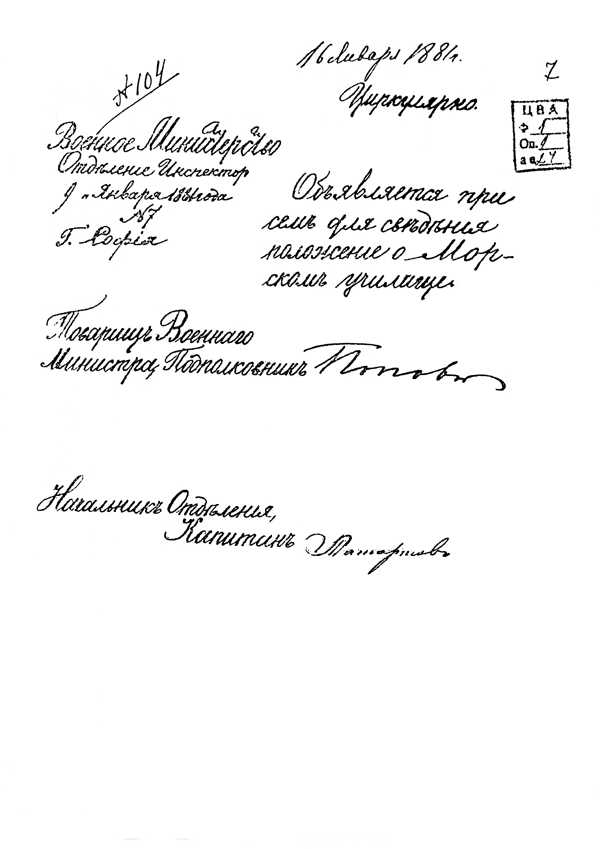 16 Января 1881г.
7
N 104
Циркулярно.
ЦВА
Ф 1
Оп. 1
а е. 24
Военное Министерство
Отдѣление Инспектор
9 „ Января 1881 года
N7
Г. София
Объявляется при
семъ для свѣдѣния
положение о Мор-
скомъ училище.
Товарищъ Военнаго
Министра, Подполковникъ Поповъ
Начальникъ Отдѣления,
Капитинъ